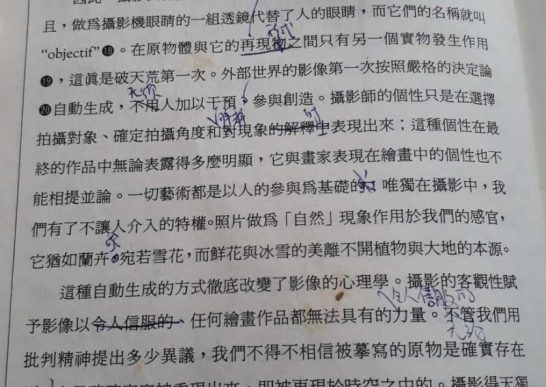 且，做為攝影機眼睛的一組透鏡代替了人的眼睛，而它們的名稱就叫
“objectif”⓲。在原物體與它的再現物之間只有另一個實物發生作用
⓳，這眞是破天荒第一次。外部世界的影像第一次按照嚴格的決定論
⓴自動生成，不用人加以干預，參與創造。攝影師的個性只是在選擇
拍攝對象、確定拍攝角度和對現象的解釋中表現出來；這種個性在最
終的作品中無論表露得多麼明顯，它與畫家表現在繪畫中的個性也不
能相提並論。一切藝術都是以人的參與爲基礎的，唯獨在攝影中，我
們有了不讓人介入的特權。照片做爲「自然」現象作用於我們的感官，
它猶如蘭卉，宛若雪花，而鮮花與冰雪的美離不開植物與大地的本源。
這種自動生成的方式徹底改變了影像的心理學。攝影的客觀性賦
令人信服的
予影像以令人信服的、任何繪畫作品都無法具有的力量。不管我們用
批判精神提出多少異議，我們不得不相信被摹寫的原物是確實存在